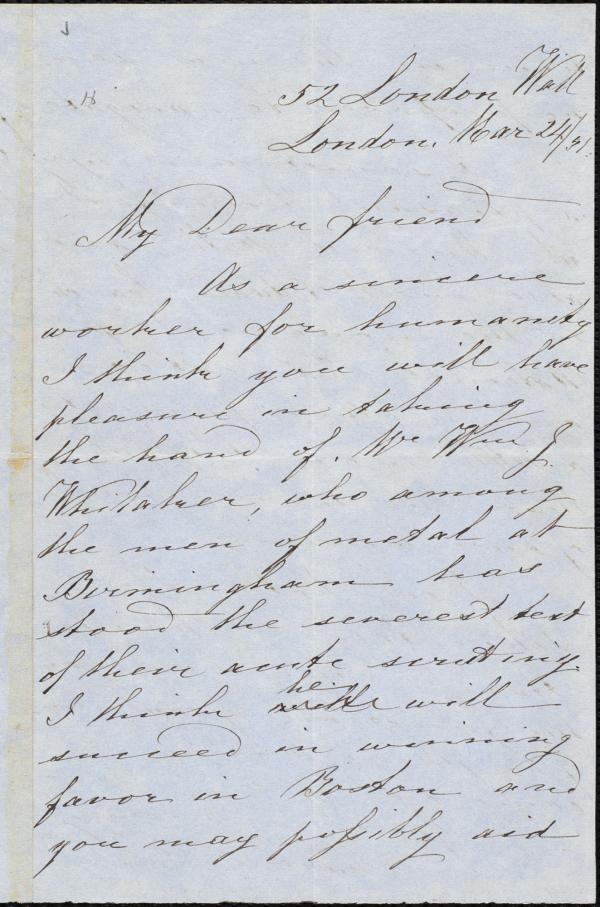 52 London Wall
London. Mar 24/51.
My Dear friend
As a sincere
worker for humanity
I think you will have
pleasure in taking
the hand of. Mr Wm J.
Whitaker, who among
the men of metal at
Birmingham has
stood the severest test
of their acute scrutiny.
I think he will
succeed in winning
favor in Boston and
you may possibly aid